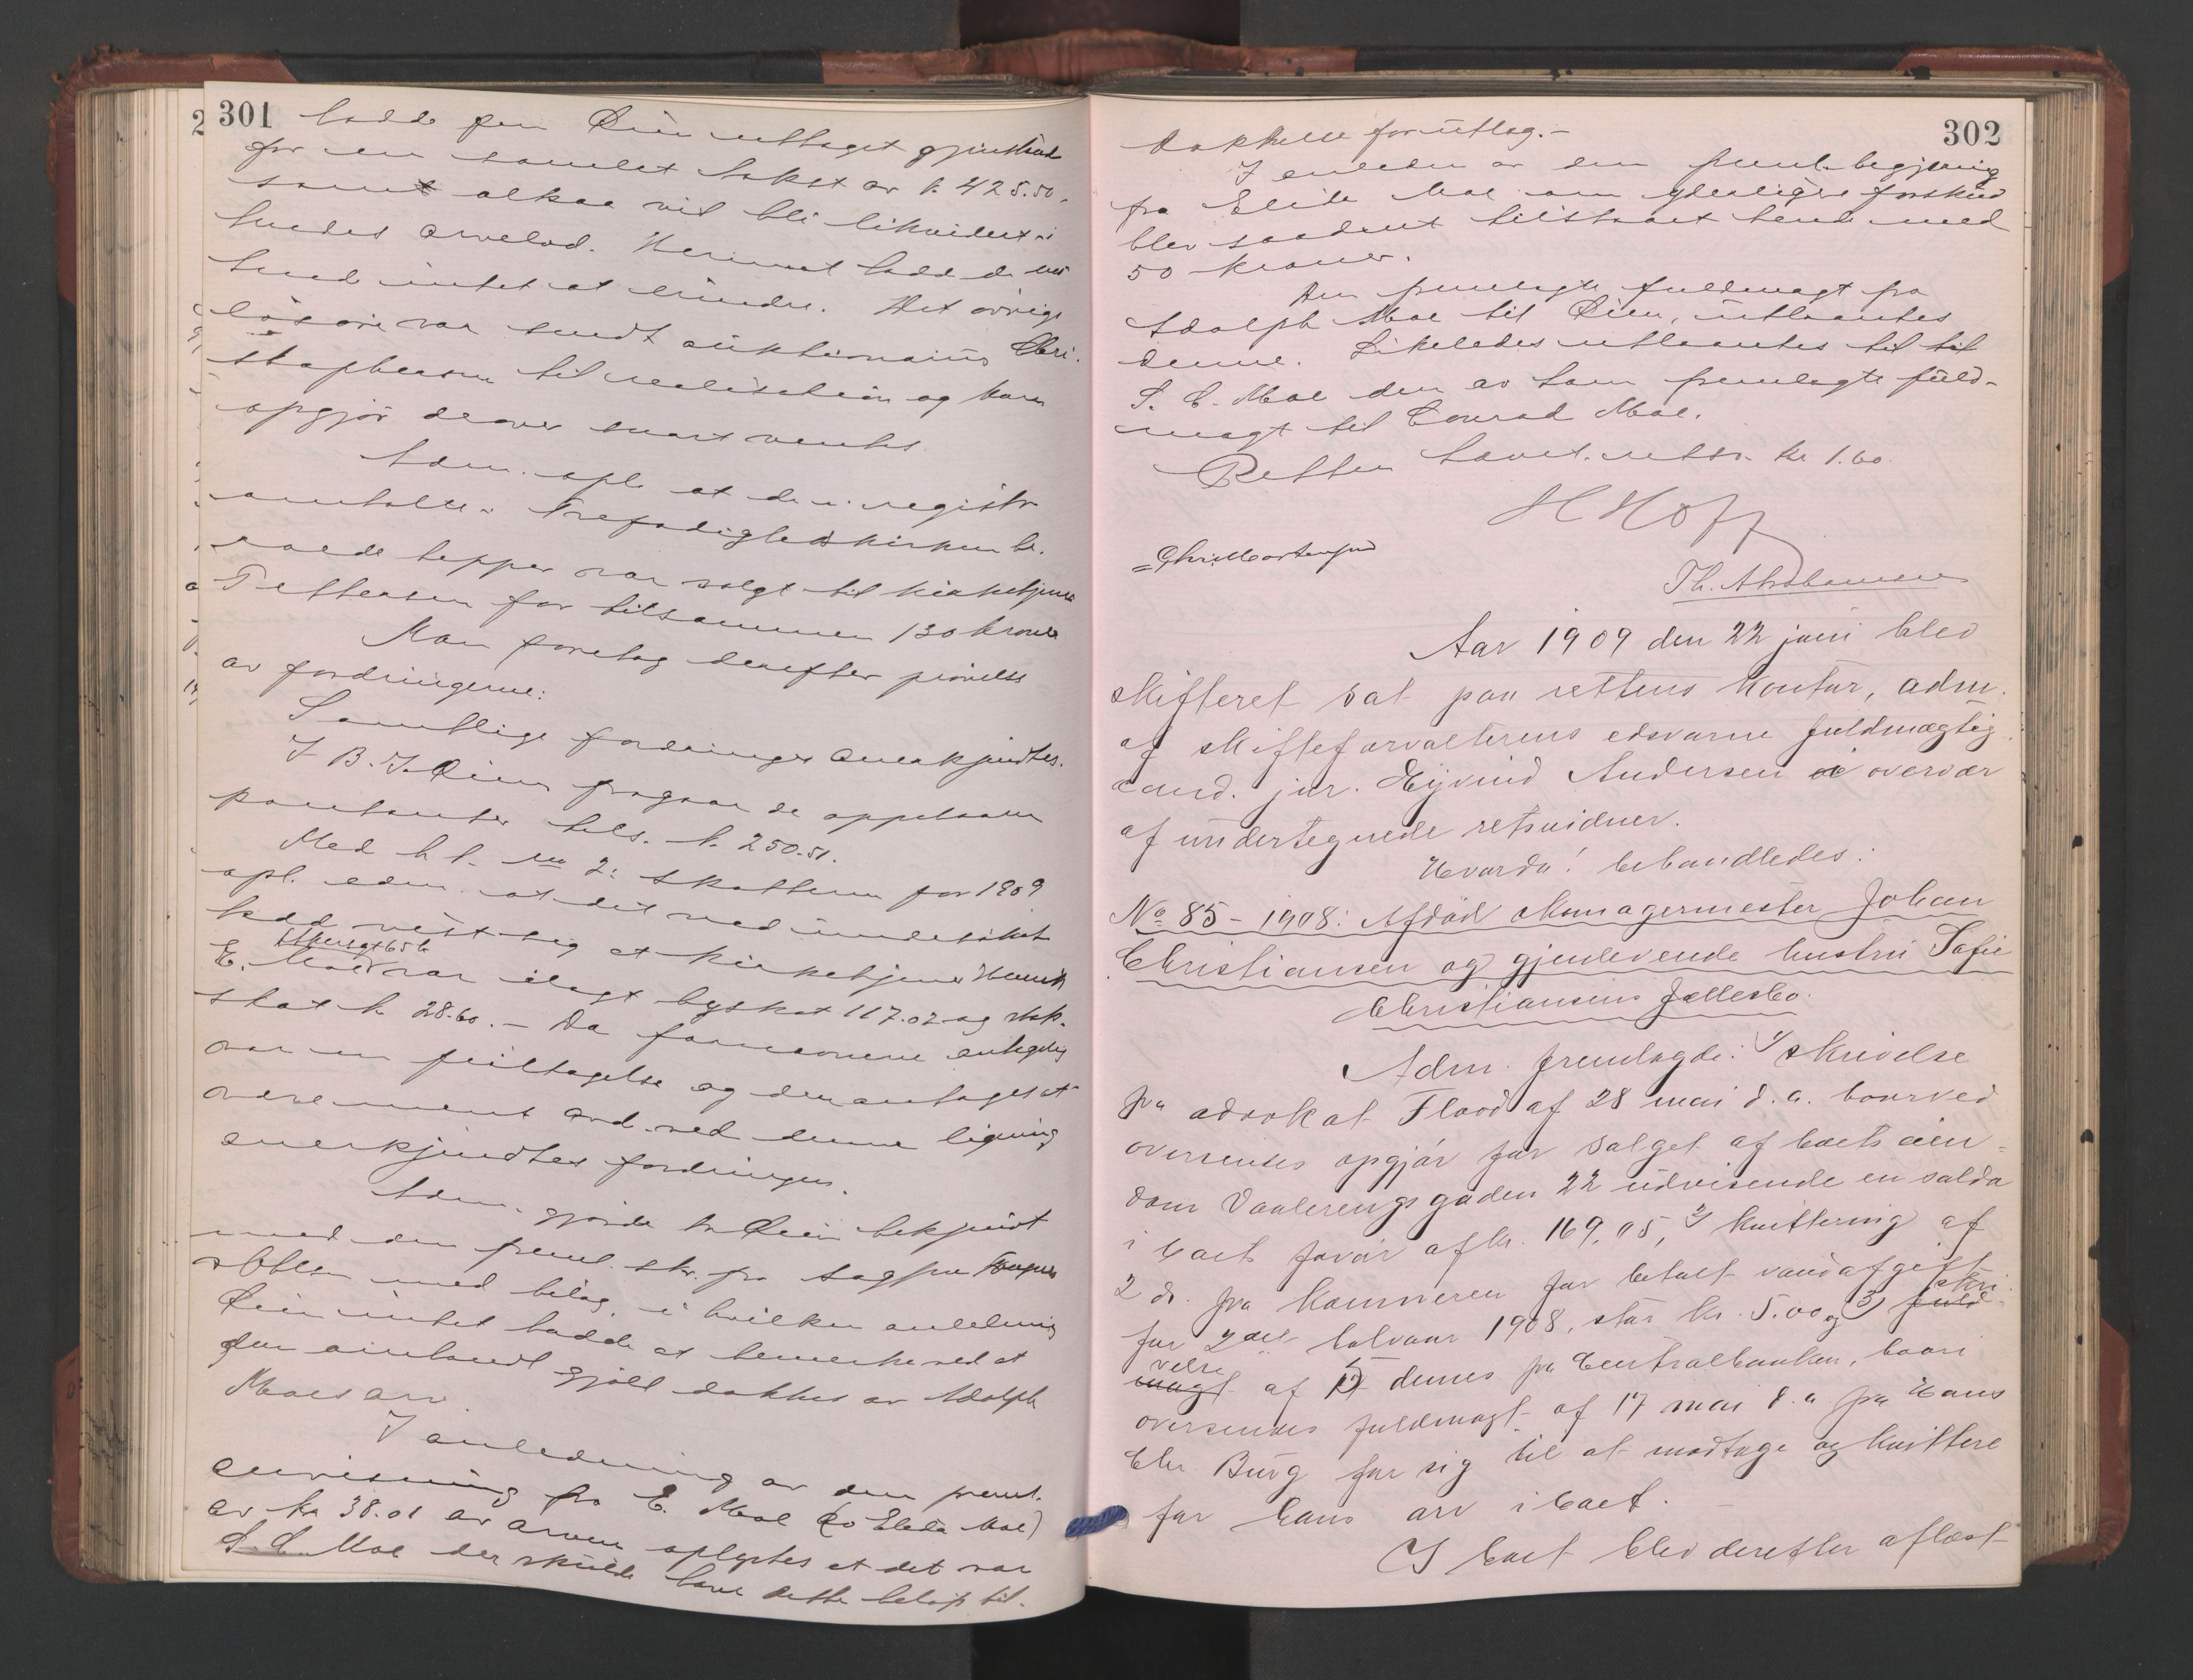 301
hadde frn Øien uttaget gjenstande
for en samlet takst av k. 425.50,
som alkaa vil bli likvidert i
hendes arvelod. Herimot hadde de
intet at erindre. Det øvrige
løsøre var sendt auktionarius Chri-
stophersen til realisation og kan
opgjør derover snart ventes.
Adm. opl. at de i registr
omtalte i Trefoldighedskirken be-
roende tepper var solgt til kirketjener
Pettersen for tilsammen 130 kroner
Man foretog derefter prøvelse
av fordringerne:
Samtlige fordringer anerkjendtes.
I B. J. Øiens fragaar de oppebaarne
kontanter tils. k. 250.51.
Med h. t. No 2: skatterne for 1909
opl. adm. at det ved undersøkelse
hadde vist sig at kirketjener Henrik
Akersgt 65 b
E. Moe var ilagt byskat 117.02 og
skat k. 28.60. – Da fornavnene
var en feiltagelse og den antages at
være ment avd. ved denne ligning
anerkjendtes fordringen.
Adm. gjorde hr Øien bekjendt
med den freml. skr. fra sagfører
med bilag, i hvilken anledning
Øien intet hadde at bemerke ved at
den omhandl. gjæld dækkes av Adolph
Moes arv.
I anledning av den freml.
anvisning fra E. Moe (o: Elida Moe)
av kr 38.01 av arven oplystes at det var
S. C. Moe der skulde have dette beløp til-
302
for utlæg. –
I anledn. av den freml. begjæring
fra Elida Moe om yderligere forskud
blev saadant tilstaaet hende med
50 kroner.
Den fremlagte fuldmagt fra
Adolph Moe til Øien, utlaantes
denne. Likeledes utlaantes til til
S. C. Moe den av ham fremlagte fuld-
magt til Conrad Moe.
Retten hævet. retsv. kr 1.60.
H Hoff
Chr. Mortensen
Th. Abrahamsen
Aar 1909 den 22 juni blev
skifteret sat paa rettens kontor, adm.
af skifteforvalterens edsvorne fuldmægtig
cand. jur. Eyvind Andersen i overvær
af undertegnede retsvidner.
Hvorda! behandledes:
No 85 – 1908: Afdød skomagermester Johan
Christiansen og gjenlevende hustru Sofie
Christiansens fællesbo.
Adm. fremlagde: 1/ skrivelse
fra advokat Flood af 28 mai d. a. hvorved
oversendes opgjør for salget af boets eien-
dom Vaalerenggaden 22 udvisende en saldo
i boets favør af kr. 169.05, 2/ kvittering af
2 ds. fra kæmneren for betalt vandafgift
for 2det halvaar 1908, stor kr. 5.00 og 3/ fuld- skri-
magt velse af 15 dennes fra Centralbanken, hvori
oversendes fuldmagt af 17 mai d. a. fra Hans
Chr. Burg for sig til at modtage og kvittere
for hans arv i boet.
I boet blev derefter aflæst